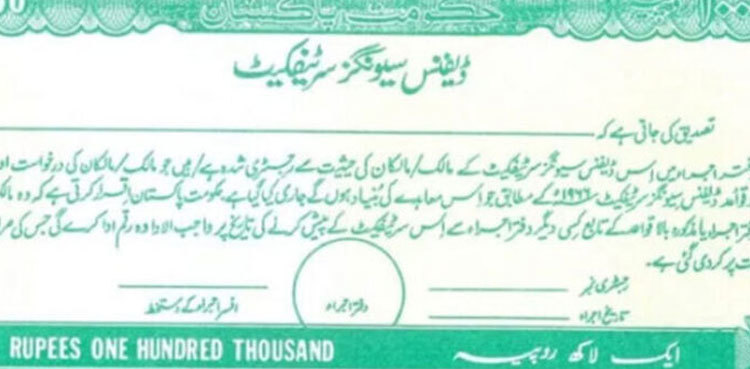 حکومت پاکستان
ڈیفنس سیونگز سرٹیفکیٹ
تصدیق کی جاتی ہے کہ
اجراء میں اس ڈیفنس سیونگز سرٹیفکیٹ کے مالک/مالکان کی حیثیت سے رجسٹری شدہ ہے/ہیں جو مالک/مالکان کی درخواست
ڈیفنس سیونگز سرٹیفکیٹ ۱۹۶۶ء کے مطابق جو اس معاہدے کی بنیاد ہوں گے جاری کیا گیا ہے حکومت پاکستان اقرار کرتی ہے کہ وہ
اجراء یا مذکورہ بالا قواعد کے تابع کسی دیگر دفتر اجراء سے اس سرٹیفکیٹ کے پیش کرنے کی تاریخ پر واجب الادا وہ رقم ادا کرے گی جس کی
پر کر دی گئی ہے۔
رجسٹری نمبر
تاریخ اجراء
دفتر اجراء
افسر اجراء کے دستخط
RUPEES ONE HUNDRED THOUSAND
ایک لاکھ روپیہ